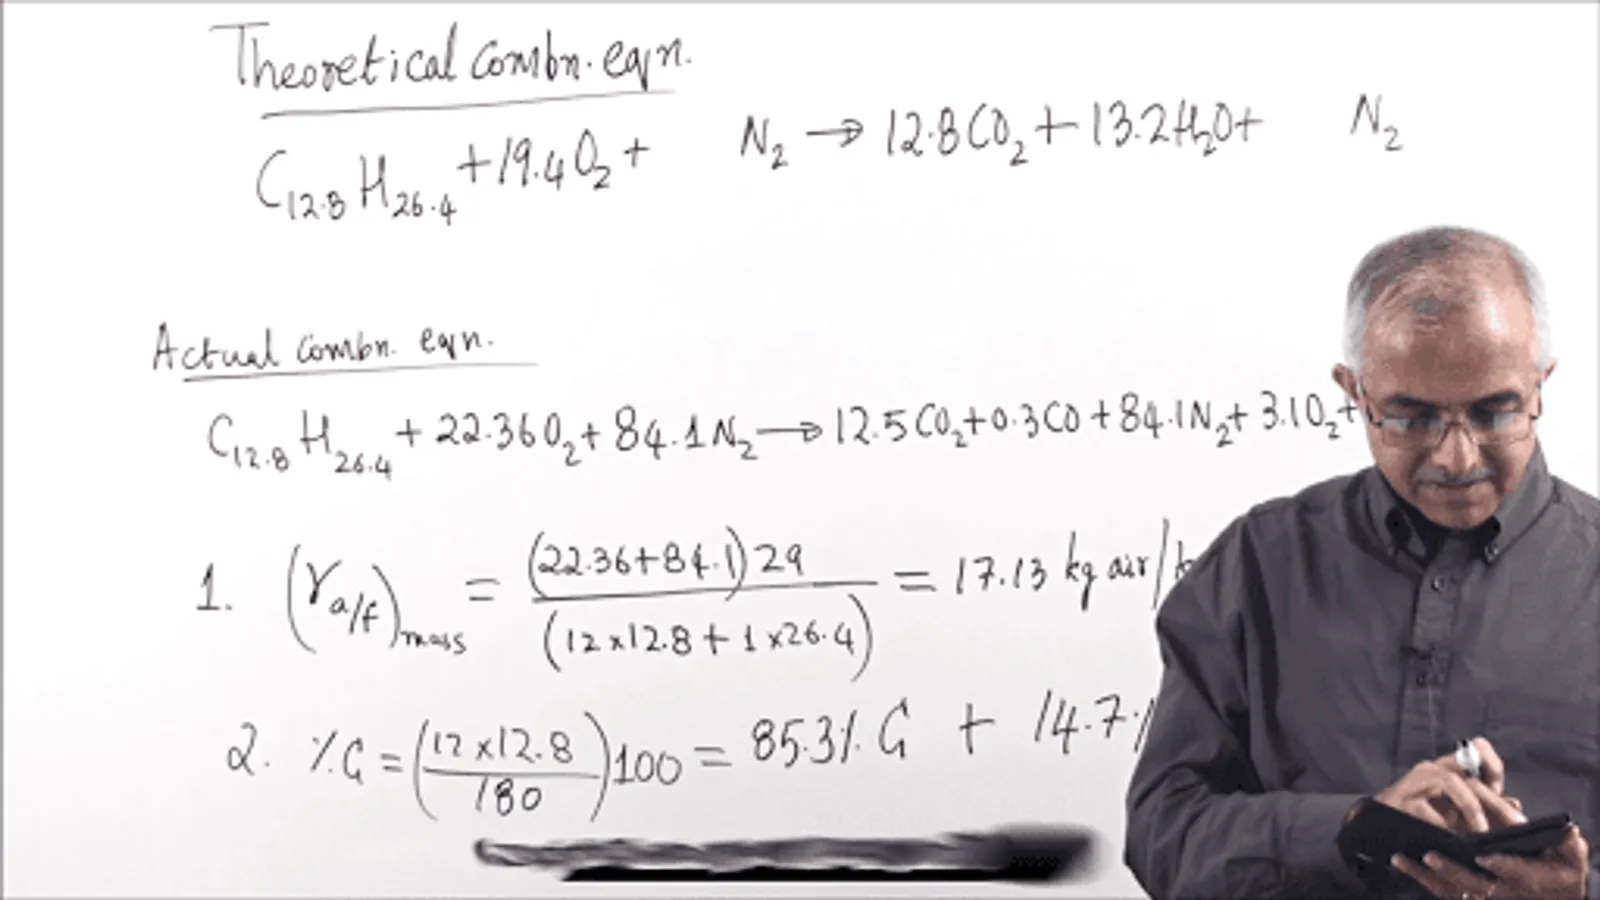 Theoretical Combn. eqn.
C12.8 H26.4 + 19.4O2 + N2 → 12.8CO2 + 13.2H2O + N2
Actual Combn. eqn.
C12.8 H26.4 + 22.36O2 + 84.1N2 → 12.5CO2 + 0.3CO + 84.1N2 + 3.1O2 +
1. (ra/f)mass = (22.36+84.1)29 / (12x12.8 + 1x26.4) = 17.13 kg air/
2. %C = (12x12.8 / 180)100 = 85.3% C + 14.7%